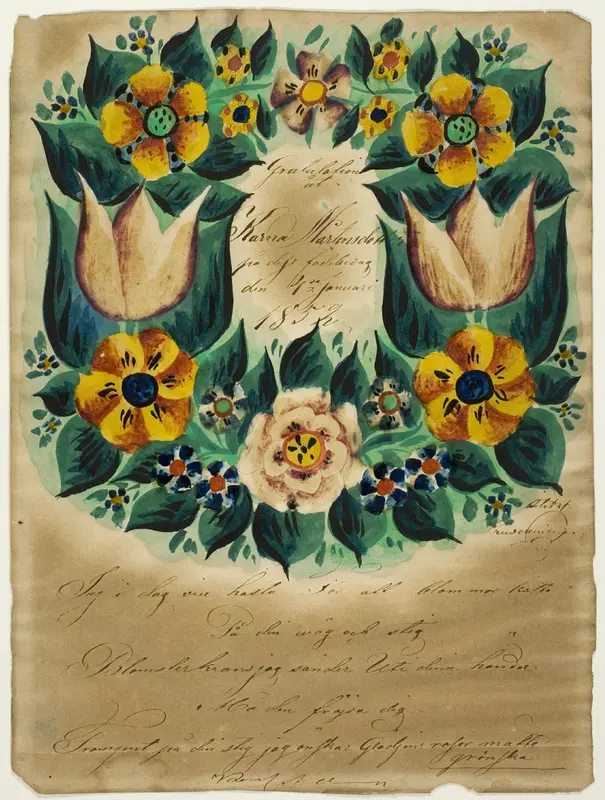 Gratulation
at
Karna Mårtensdotter
på dess födelsedag
den 4de januari
1852
Jag i dag vill hasta För att blommor kasta
På din väg och stig
Blomsterkrans jag sänder Uti dina händer
Må den fröjda dig
på din stig jag önskar Glädjens rosor måtte
grönska